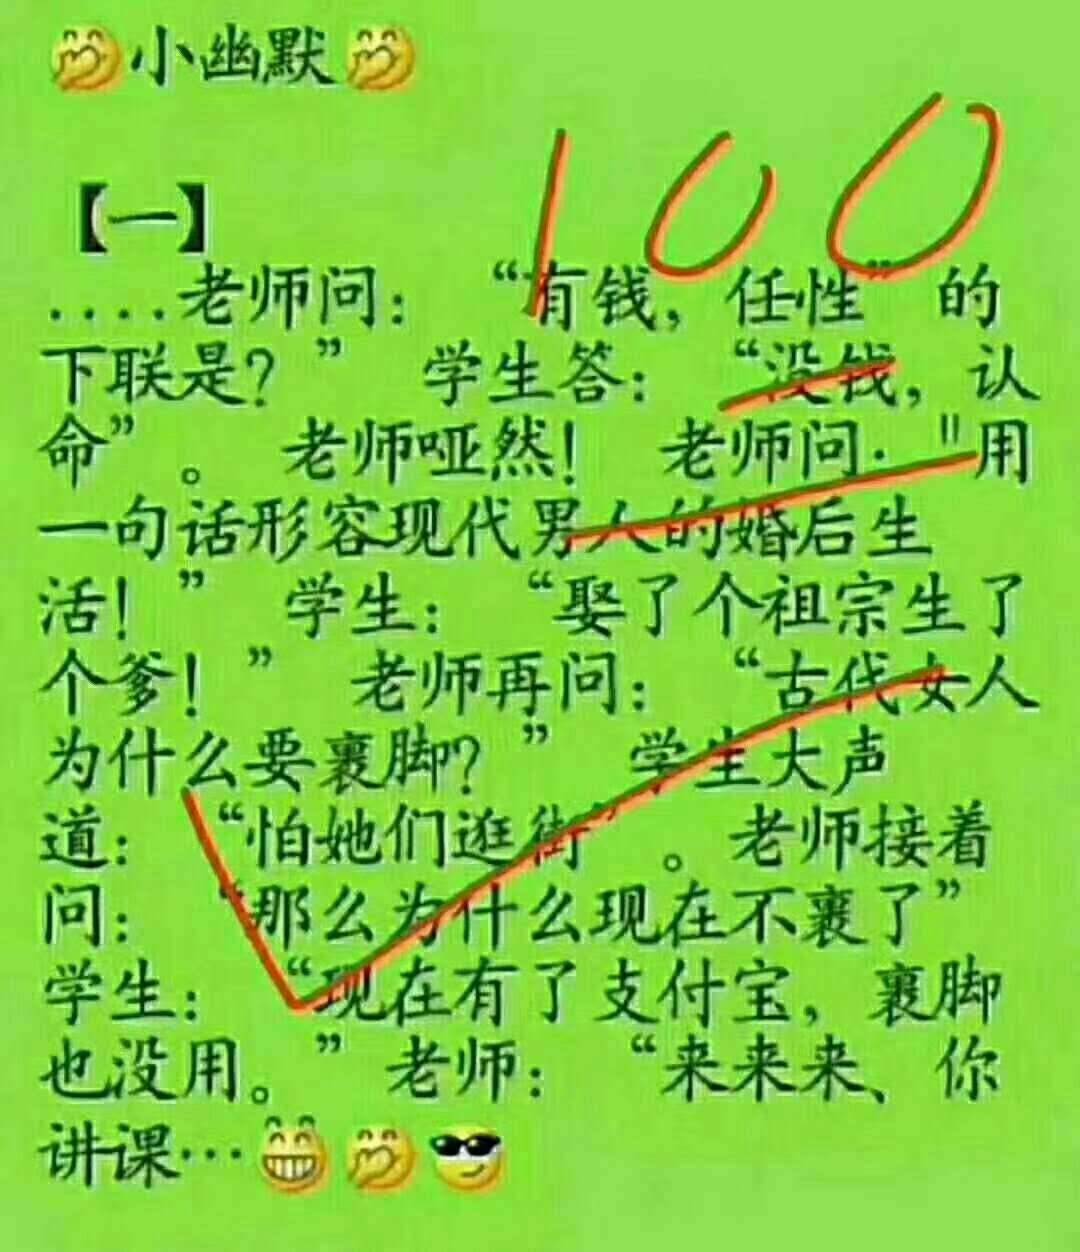 小幽默
100
【一】
....老师问：“有钱，任性”的
下联是？”学生答：“没钱，认
命”。老师哑然！老师问："用
一句话形容现代男人的婚后生
活！”学生：“娶了个祖宗生了
个爹！”老师再问：“古代女人
为什么要裹脚？”学生大声
道：“怕她们逛街”。老师接着
问：“那么为什么现在不裹了”
学生：“现在有了支付宝，裹脚
也没用。”老师：“来来来、你
讲课…